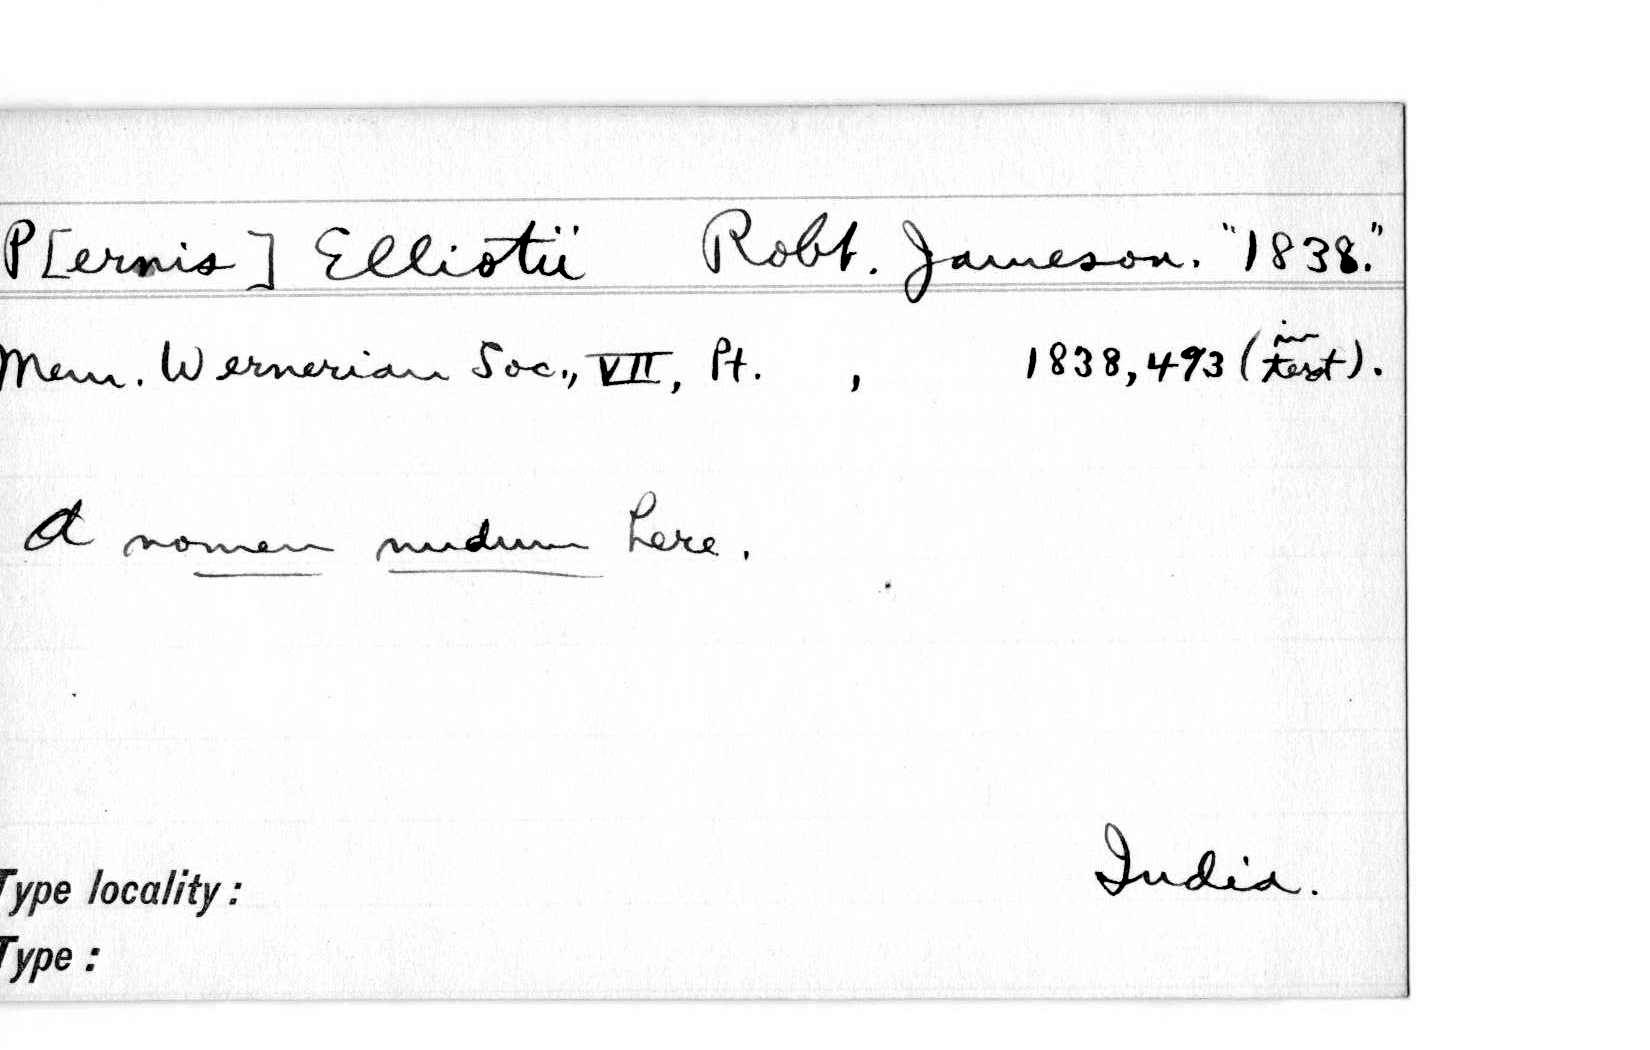 P[ernis] Elliotii Robt. Jameson. "1838."
Mem. Wernerian Soc., VII, Pt. , 1838, 493 (in text).
A nomen nudum here.
India.
Type locality:
Type: